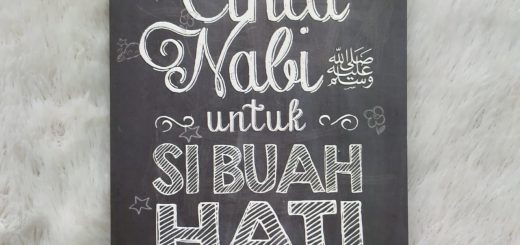 Cinta
Nabi ﷺ
untuk
SI BUAH
HATI